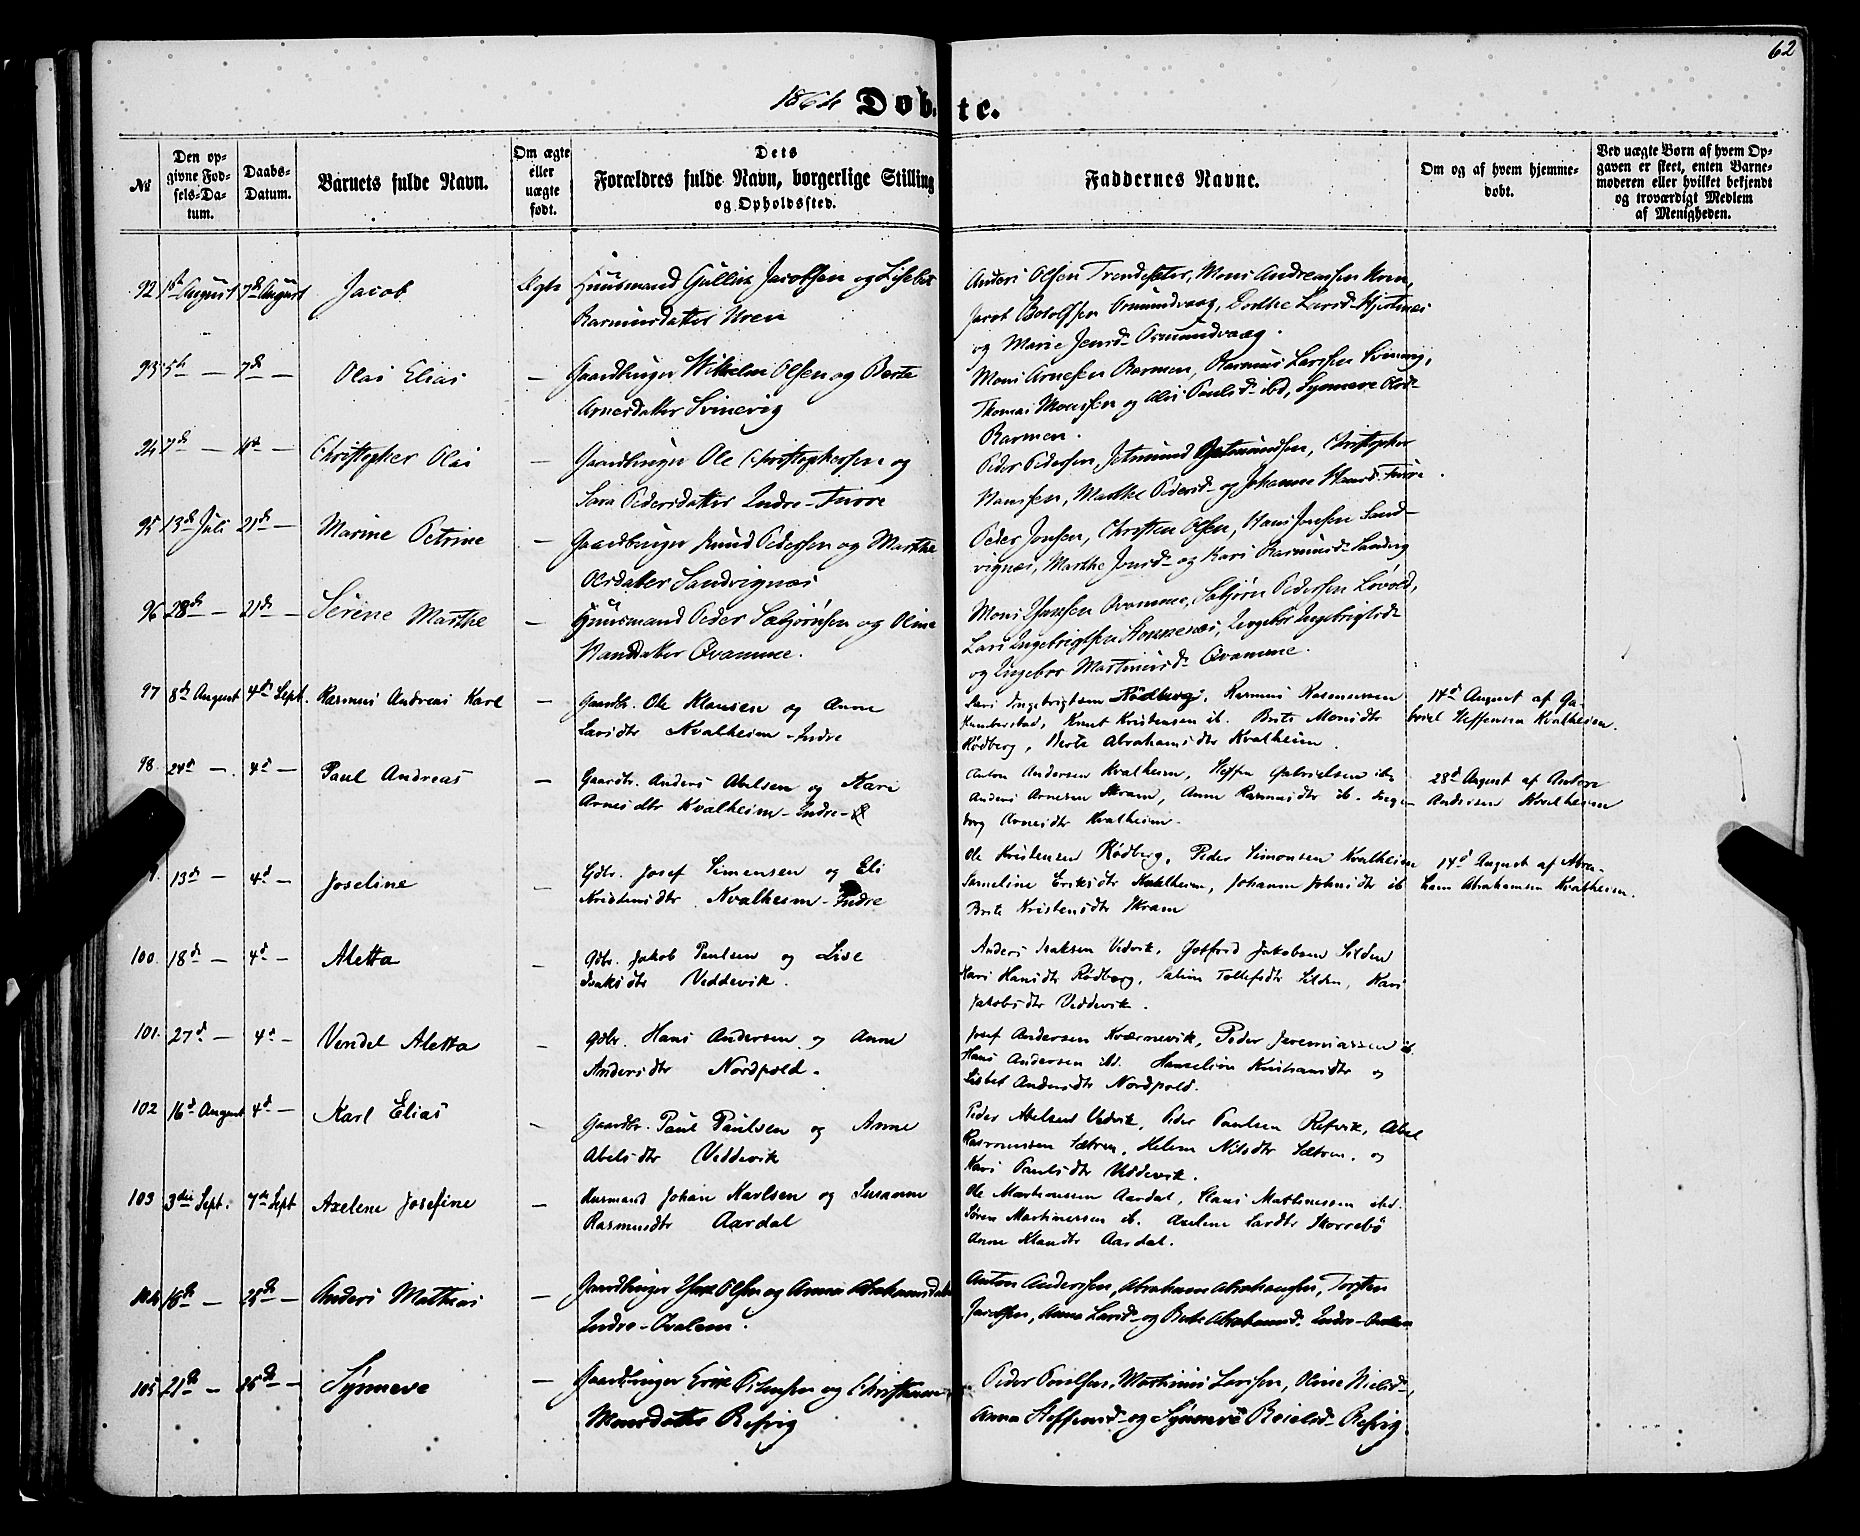 62
1864 Døbte.
No
Den opgivne Fødsels-Datum.
Daabs-Datum.
Barnets fulde Navn.
Om ægte eller uægte født.
Dets Forældres fulde Navn, borgerlige Stilling og Opholdssted.
Faddernes Navne.
Om og af hvem hjemmedøbt.
Ved uægte Børn af hvem Opgaven er skeet, enten Barnemoderen eller hvilket bekjendt og troværdigt Medlem af Menigheden.
92 1st August 7de August Jacob Ægte Huusmand Gullik Jacobsen og Lisebet
Rasmusdatter Hren
Anders Olsen Trendesæter, Mons Andreassen Hren,
Jacob Botolfsen Osmundvaag, Dorthe Larsd.
og Marie Jensd. Osmundvaag.
93 5te — 7de — Olai Elias — Gaardbruger Wilhelm Olsen og Berte
Arnesdatter Svinevig
Mons Arnesen Barmen, Rasmus Larssen Svinevig,
Thomas Monssen og Olise Paulsd. ibd, Synneve Olsd.
Barmen.
94 7de — — Christopher Olai — Gaardbruger Ole Christophersen og
Sara Pedersdatter Indre-Furre
Peder Pedersen, Jetmund Jetmundsen, Christopher
Hanssen, Marthe Pedersd. og Johanne Hansd. Furre
95 13de Juli 21de — Marine Petrine — Gaardbruger Knud Pedersen og Marthe
Olsdatter Sandvignæs
Peder Jonsen, Christen Olsen, Hans Jonsen Sand-
vignæs, Marthe Jonsd. og Kari Rasmusd. Sandvig
96 28de — 21de — Serine Marthe — Huusmand Peder Sæbjørnsen og Oline
Hansdatter Qvamme.
Mons Hanssen Qvamme, Sæbjørn Pedersen Løvold,
Lars Ingebrigtsen Stokkenæs, Ingebor Ingebrigtsd.
og Ingebor Martinusd. Qvamme.
97 8de August 4de Sept. Rasmus Andreas Karl — Gaardbr. Ole Klausen og Anne
Larsdtr Kvalheim-Indre
Lars Ingebrigtsen Rødberg, Rasmus Rasmussen
Humberstad, Knut Kristensen ib. Brite Monsdtr
Rødberg, Berte Abrahamsdtr Kvalheim.
14d August af Ga-
briel Steffensen Kvalheim.
98. 24d — 4d — Paul Andreas — Gaardbr. Anders Abelsen og Kari
Arnesdtr Kvalheim-Indre-
Anton Andersen Kvalheim, Steffen Gabrielsen ib.
Anders Arnesen Skram, Anne Rasmusdtr ib. Inge-
borg Arnesdtr Kvalheim.
28d August af Anton
Andersen Kvalheim
13de — 4d — Joseline — Gdbr. Josef Simensen og Eli
Kristensdtr Kvalheim-Indre
Ole Kristensen Rødberg, Peder Simonsen Kvalheim
Sameline Eriksdtr Kvalheim, Johanne Johnsdtr ib
Brite Kristensdtr Skram
14d August af Abra-
ham Abrahamsen Kvalheim.
100. 18de — 4d — Aletta — Gdbr. Jakob Paulsen og Lise
Isaksdtr Veddevik.
Anders Isaksen Vedvik, Gotfred Jakobsen Silden
Kari Hansdtr Rødberg, Saline Tollefsdtr Silden, Kari
Jakobsdtr Veddevik.
101. 27d — 4d — Vendel Aletta — Gdbr. Hans Andersen og Anne
Andersdtr Nordpold.
Josef Andersen Kværnevik, Peder Jeremiassen ib.
Hans Andersen ibd. Hanseline Kristiansdtr og
Lisbet Andersdtr Nordpold.
102 16d August 4d — Karl Elias — Gaardbr. Paul Paulsen og Anne
Abelsdtr Veddevik
Peder Abelsen Vedvik, Peder Paulsen Refvik, Abel
Rasmussen Sætren, Helene Nilsdtr Sætren, og
Kari Paulsdtr Veddevik.
103 3die Sept. 7de Sept Axelene Josefine — Husmand Johan Karlsen og Susanne
Rasmusdtr Aardal
Ole Martinussen Aardal, Claus Mathiessen ibd.
Søren Martinussen ib. Axelene Larsdtr Skorrebø
Anne Klausdtr Aardal.
104 16de — 25de — Anders Mathias — Gaardbruger Isak Olsen og Anna Abrahamsdatter
Indre-Qvalem.
Anton Anderssen, Abraham Abrahamsen, Torsten
Jacobsen, Anna Larsd. og Berte Abrahamsd. Indre-Qvalem
105 21de — 25de — Synneve — Gaardbruger Erik Pedersen og Christianne
Monsdatter Refvig
Peder Poulsen, Martinus Larssen, Oline Nielsd.,
Anna Steffensd. og Synneve Roielsd. Refvig.